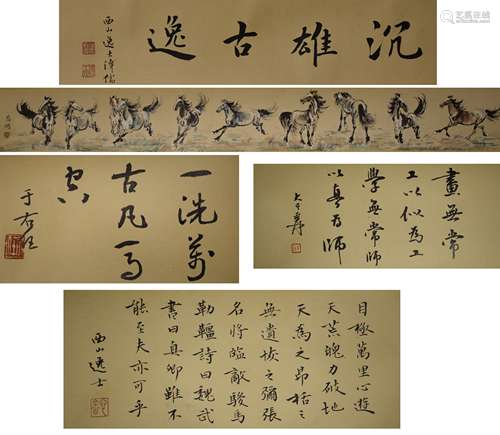 卓克艺术网
zxart.cn
沉雄古逸
西山逸士溥儒
悲鴻
一洗萬
古凡馬
空
于右任
畫無常
工以似為工
學無常師
以真為師
大千爰
目極萬里心遊
天荒魄力破地
天為之昂括之
無遺埃之彌張
名將臨敵駿馬
勒韁詩曰魏武
書曰真卿雖不
能至夫亦可乎
西山逸士